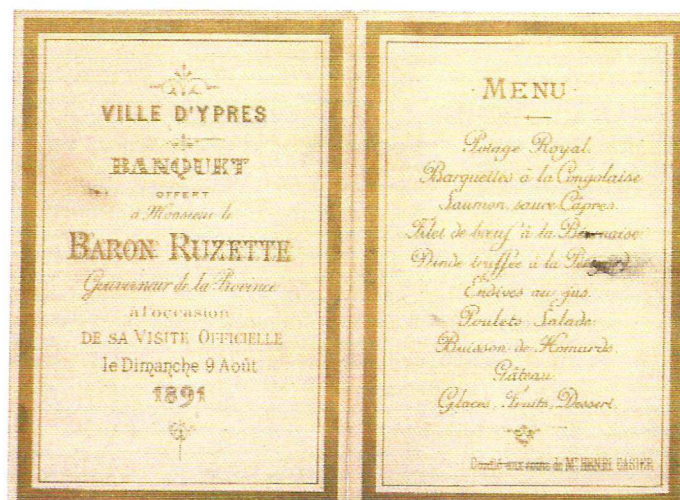 VILLE D'YPRES
BANQUET
OFFERT
à Monsieur le
BARON RUZETTE
Gouverneur de la Province
à l'occasion
DE SA VISITE OFFICIELLE
le Dimanche 9 Août
1891
MENU
Potage Royal.
Barquettes à la Congolaise
Saumon, sauce Câpres.
Filet de bœuf à la Béarnaise
Dinde truffée à la
Endives au jus.
Poulets, Salade.
Buisson de Homards
Gâteau.
Glaces, Fruits, Dessert.
Confié aux soins de Mr HENRI CASIER